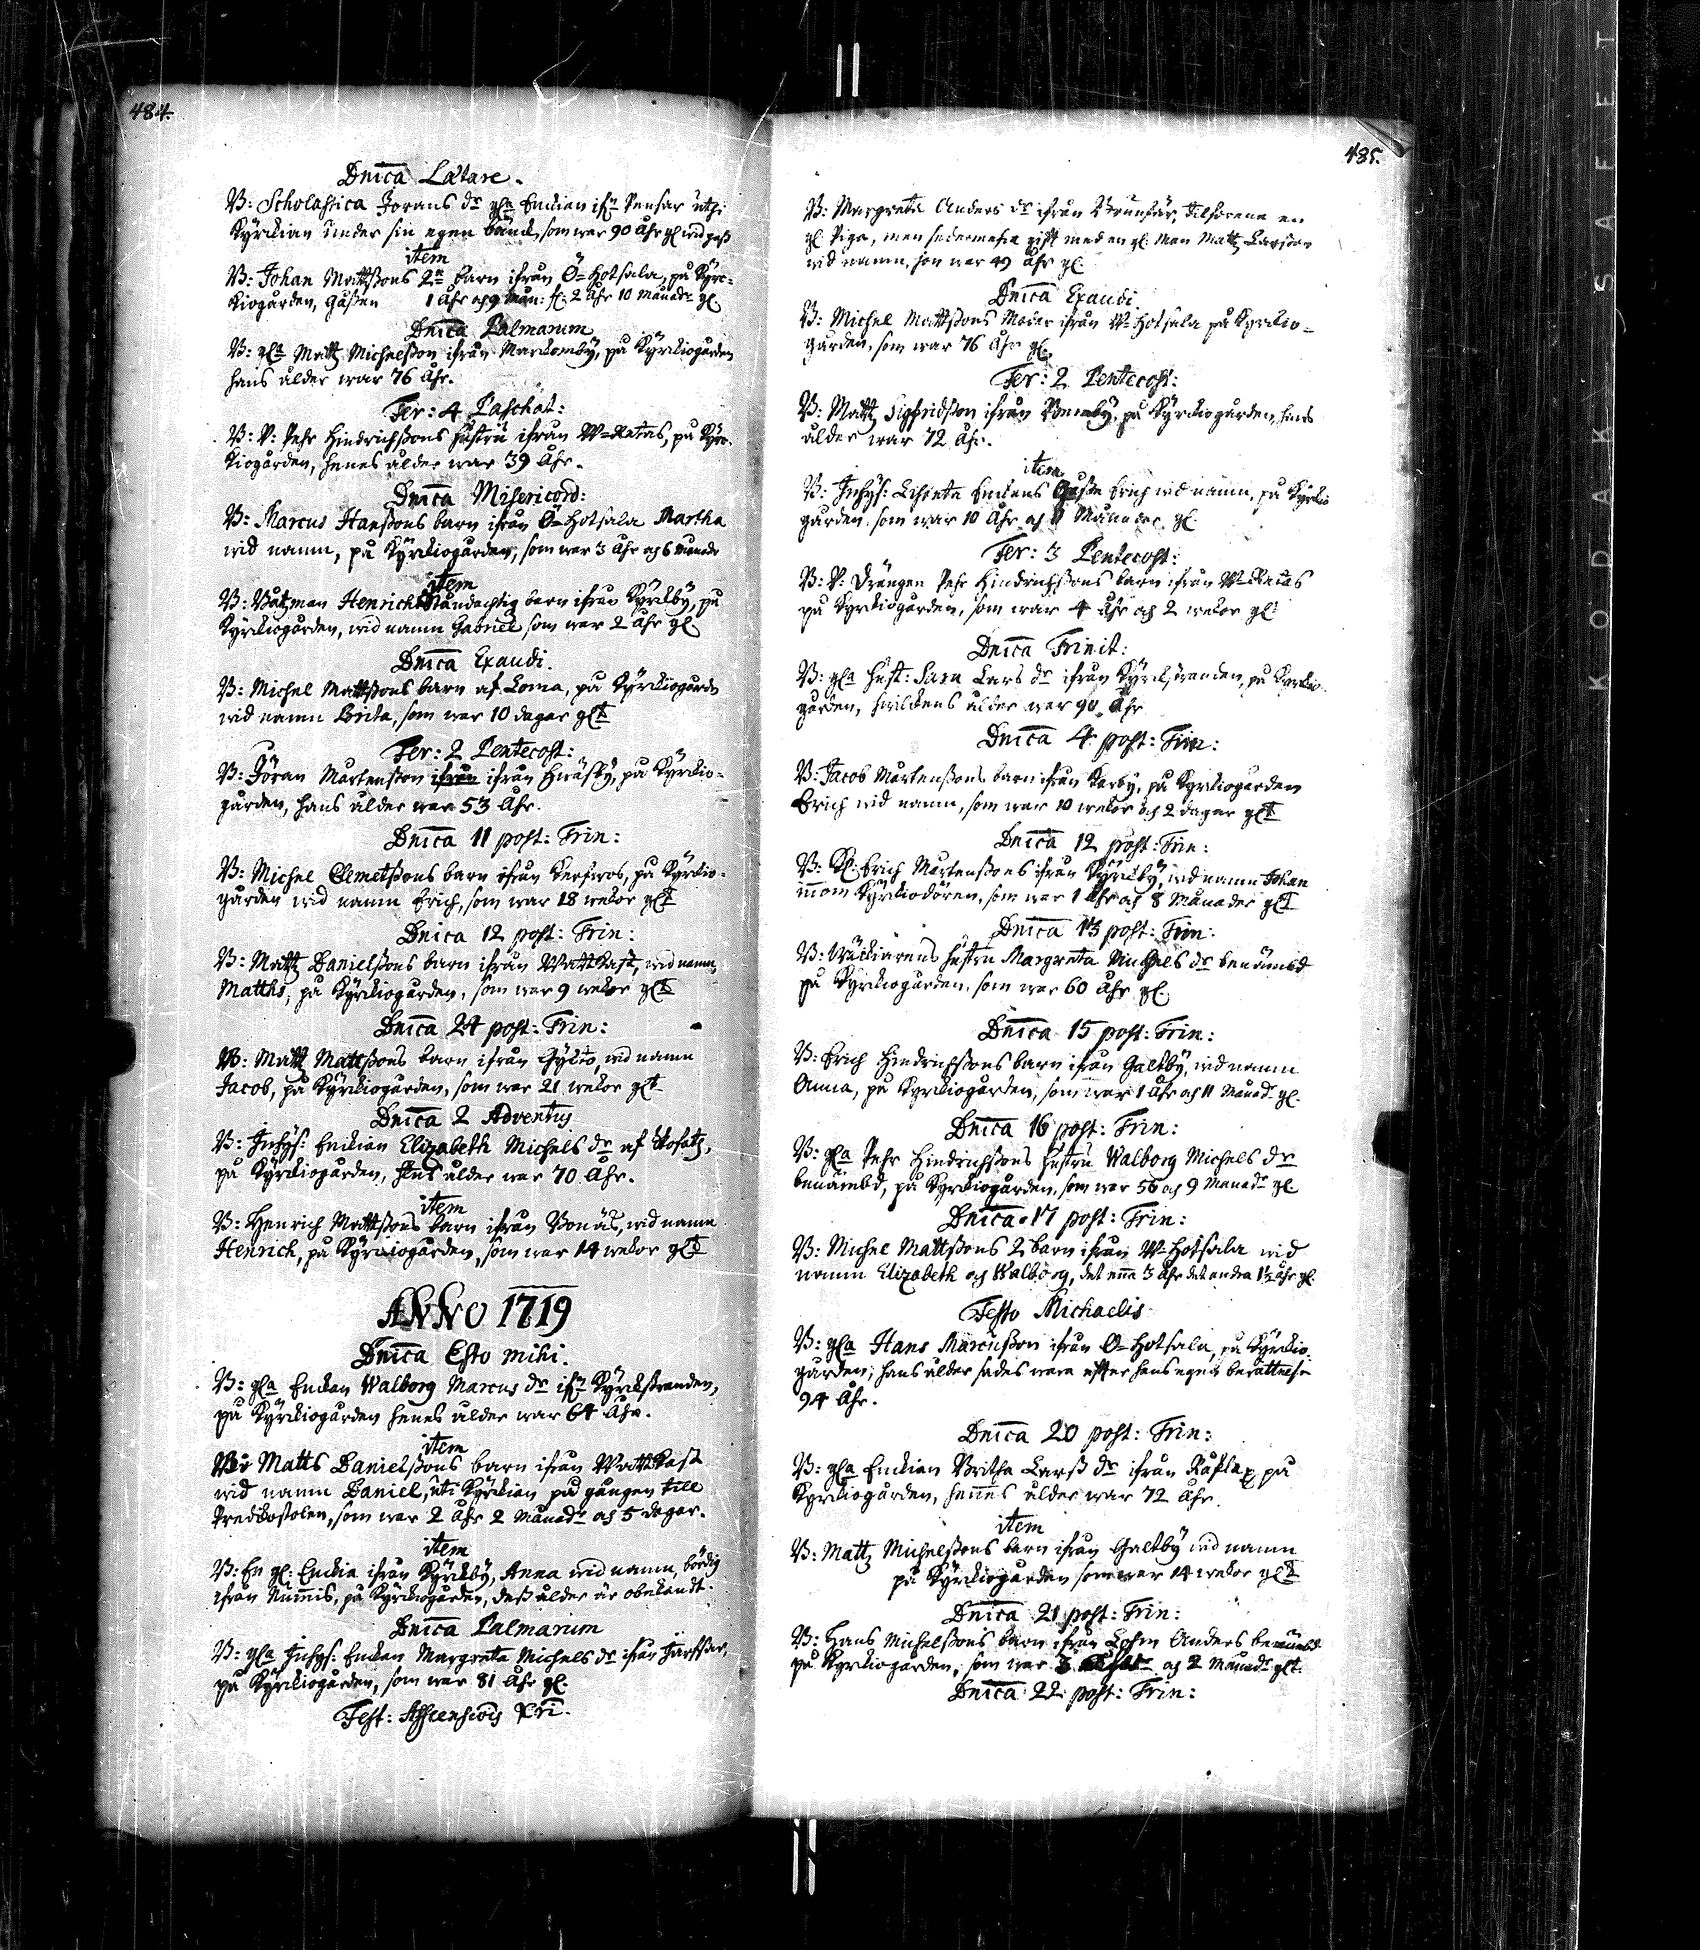 484.
Dnica Lætare.
B: Scholastica Jörans dr gla Enckian ifrn Pensar uthi
Kyrckian under sin egen bänck, som war 90 Åhr gl wid pass
item
B: Johan Mattssons 2n barn ifrån Ö-Hotsala, på Kyrc-
kiogården, Gossen 1 Åhr och 9 mån: fl: 2 Åhr 10 Månadr gl.
Dnica Palmarum
B: gla Matz Michelsson ifrån Markomby, på Kyrckiogården
hans ålder war 76 Åhr.
Fer: 4 Paschat:
B: V: Pehr Hindrichssons hustru ifrån W-Retas, på Kyrc-
kiogården, henes ålder war 39 Åhr.
Dnica Misericord:
B: Marcus Hanssons barn ifrån Ö-Hotsala Martha
wid namn, på Kyrckiogården, som war 3 Åhr och 6 månadr
item
B: Båtzman Henrich Måndachtig barn ifrån Kyrckby, på
Kyrckiogården, wid namn Gabriel som war 2 Åhr gl.
Dnica Exaudi.
B: Michel Mattssons barn af Loma, på Kyrckiogården
wid namn Brita, som war 10 dagar glt
Fer: 2 Pentecost:
B: Jöran Mårtensson ifrån ifrån Hwäsby, på Kyrckio-
gården, hans ålder war 53 Åhr.
Dnica 11 post: Trin:
B: Michel Clemetssons barn ifrån Kerfwos, på Kyrckio-
gården wid namn Erich, som war 18 wekor glt
Dnica 12 post: Trin:
B: Matz Danielssons barn ifrån Wattkast, wid namn
Matths, på Kyrckiogården, som war 9 wekor glt
Dnica 24 post: Trin:
B: Matz Mattssons barn ifrån Gyltö, wid namn
Jacob, på Kyrckiogården, som war 21 wekor glt
Dnica 2 Adventus
B: Inhys: Enckian Elizabeth Michels dr af Kofatz,
på Kyrckiogården, hens ålder war 70 Åhr.
item
B: Henrich Mattssons barn ifrån Bonäs, wid namn
Henrich, på Kyrckiogården, som war 14 wekor glt
ANNO 1719
Dnica Esto mihi.
B: gla Enckan Walborg Marcus dr ifrn Kyrckstranden,
på Kyrckiogården henes ålder war 64 Åhr.
item
B: Matts Danielssons barn ifrån Wattkast
wid namn Daniel, uti Kyrckian på gången till
Predickostolen, som war 2 Åhr 2 Månadr och 5 dagar.
item
B: En gl: Enckia ifrån Kyrckby, Anna wid namn, bördig
ifrån Nummis, på Kyrckiogården, dess ålder är obekandt.
Dnica Palmarum
B: gla Inhys: Enckan Margreta Michels dr ifrån Järfsar,
på Kyrckiogården, som war 81 Åhr gl.
Fest: Ascensiois Xri.
485.
B: Margreta Anders dr ifrån Brunskär, tilförene en
gl: Piga, men sedermehra gift med en gl: Man Matz Larsson
wid namn, hon war 49 Åhr gl
Dnica Exaudi
B: Michel Mattssons Moder ifrån W-Hotsala på Kyrckio-
gården, som war 76 Åhr gl.
Fer: 2 Pentecost:
B: Matz Sigfridsson ifrån Benby, på Kyrckiogården, hans
ålder war 72 Åhr.
item
B: Inhys: Lisbeta Enckans Gosse Erich wid namn, på Kyrckio
gården, som war 10 Åhr och 11 Månader gl.
Fer: 3 Pentecost:
B: V: Drängen Pehr Hindrichssons barn ifrån W-Retas
på Kyrckiogården, som war 4 Åhr och 2 wekor gl:
Dnica Trinit:
B: gla Hust: Sara Lars dr ifrån Kyrckstranden, på Kyrckio-
gården, hwilckens ålder war 90 Åhr
Dnica 4 post: Trin:
B: Jacob Mårtenssons barn ifrån Karby, på Kyrckiogården
Erich wid namn, som war 10 wekor och 2 dagar glt
Dnica 12 post: Trin:
B: Kl: Erich Mårtenssons ifrån Kyrckby, wid namn Johan
innom Kyrckiodören, som war 1 Åhr och 8 Månader glt
Dnica 13 post: Trin:
B: hustru Margreta Michels dr benämbd
på Kyrckiogården, som war 60 Åhr gl.
Dnica 15 post: Trin:
B: Erich Hindrichssons barn ifrån Galtby, wid namn
Anna, på Kyrckiogården, som war 1 Åhr och 11 Månadr gl.
Dnica 16 post: Trin:
B: gla Pehr Hindrichssons hustru Walborg Michels dr
benämbd, på Kyrckiogården, som war 56 och 9 Månadr gl
Dnica 17 post: Trin:
B: Michel Mattssons 2 barn ifrån W-Hotsala wid
namn Elizabeth och Walborg, det enna 3 Åhr det andra 1½ Åhr gl.
Festo Michaelis
B: gla Hans Marcusson ifrån Ö-Hotsala, på Kyrckio-
gården, hans ålder sades wara efter hans egen berättelse
94 Åhr.
Dnica 20 post: Trin:
B: gla Enckian Britha Larss dr ifrån Råslax på
Kyrckiogården, hennes ålder war 72 Åhr.
item
B: Matz Michelssons barn ifrån Galtby wid namn
på Kyrckiogården som war 14 wekor glt
Dnica 21 post: Trin:
B: Hans Michelssons barn ifrån Lohm Anders benämbd
på Kyrckiogården, som war 3 och 2 Månadr glt.
Dnica 22 post: Trin:
KODAK SAFET